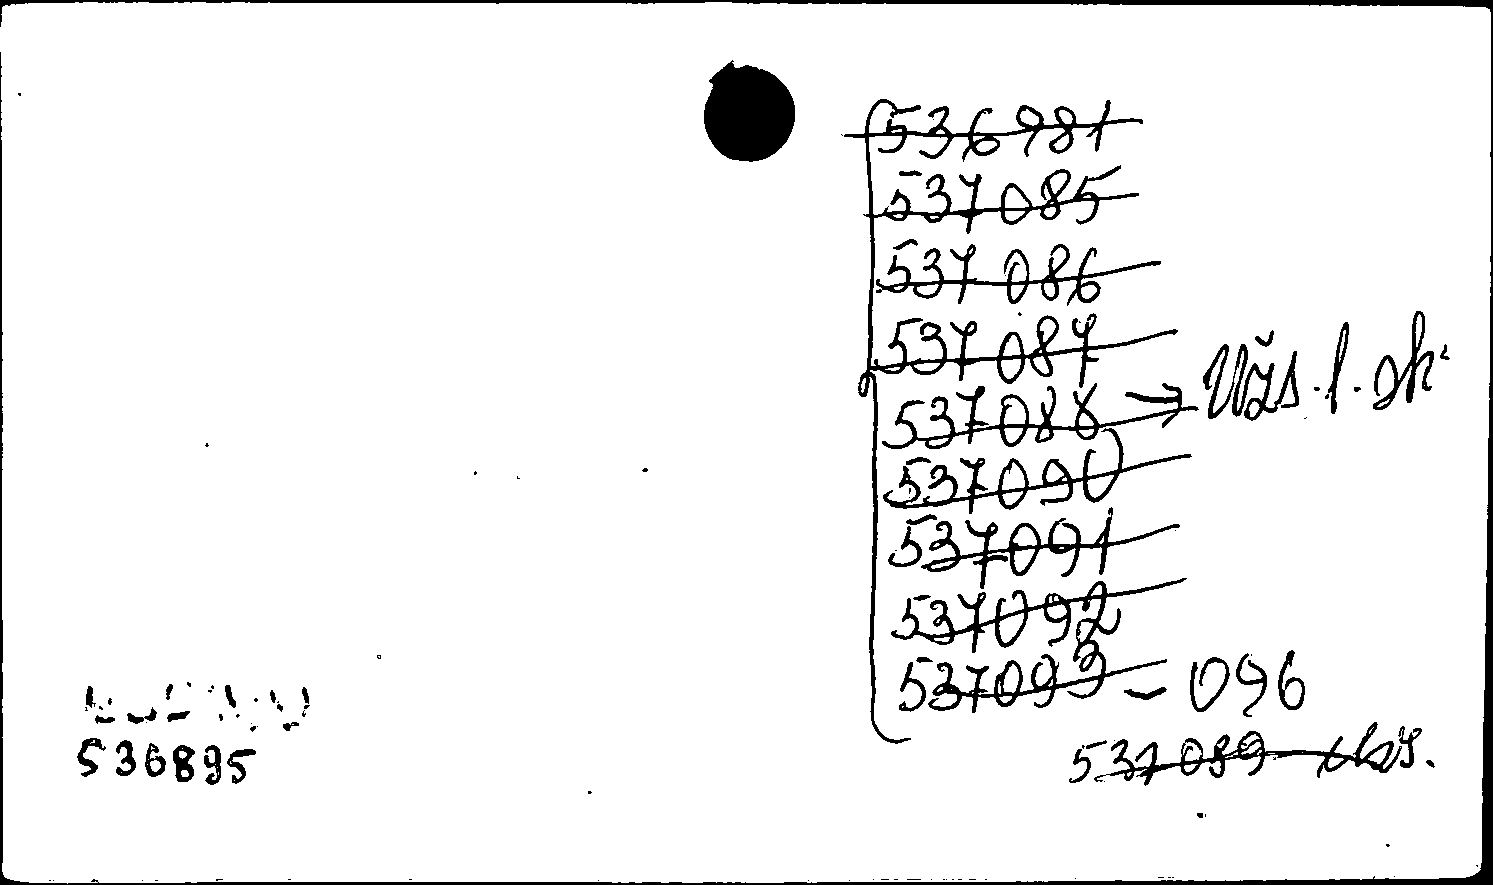 536981
537085
537086
537087
537088 → Užs. l. sk.
537090
537091
537092
537093 - 096
537089 egz.
536895